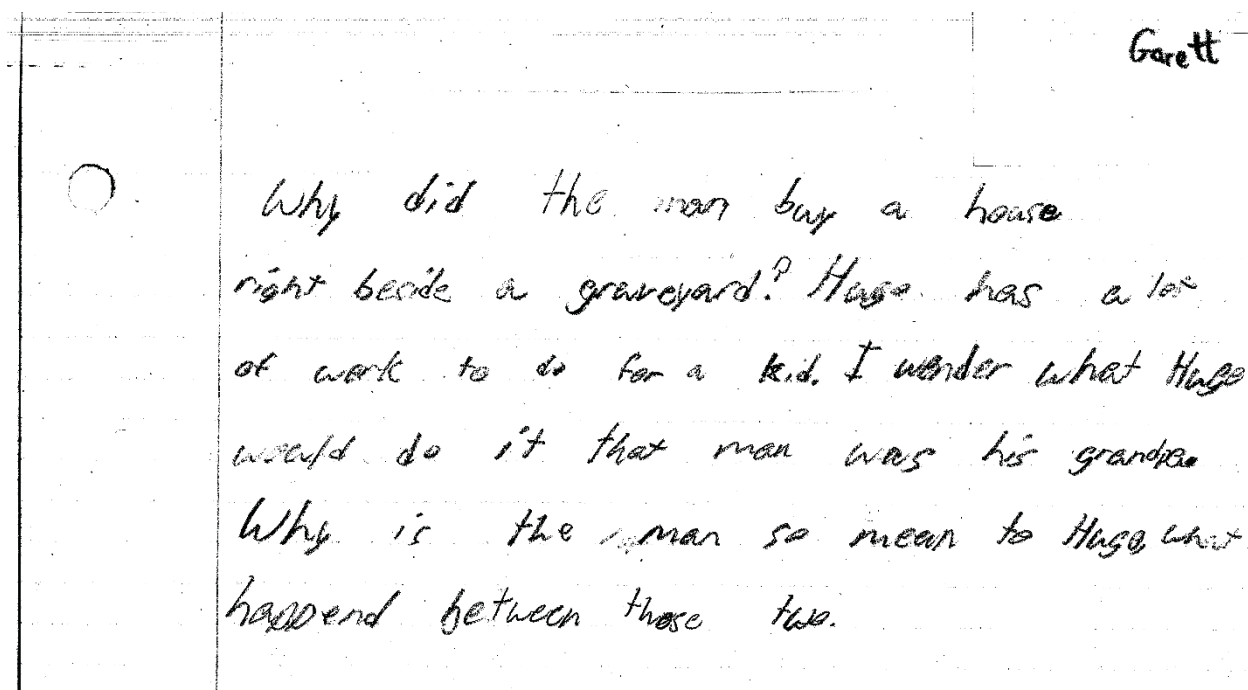 Garett
Why did the man buy a house
right beside a graveyard? Hugo has a lot
of work to do for a kid. I wonder what Hugo
would do if that man was his grandpa.
Why is the man so mean to Hugo, what
happend between those two.